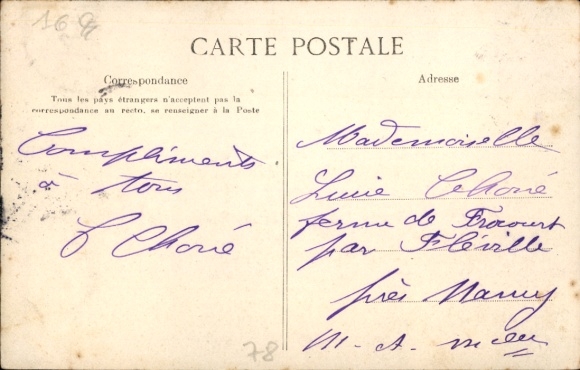 16
CARTE POSTALE
Correspondance
Tous les pays étrangers n'acceptent pas la
correspondance au recto, se renseigner à la Poste
Compliments
à tous
Adresse
Mademoiselle
Lucie
ferme de Frocourt
par Fléville
près Nancy
M. et
78